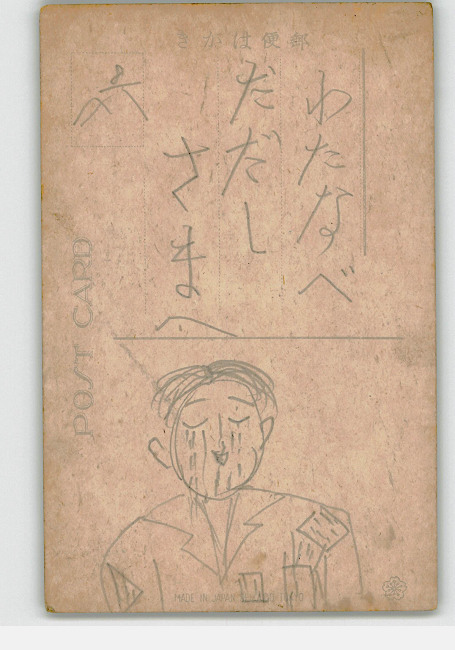 郵便はがき
わたなべ
だだし
さまへ
POST CARD
MADE IN JAPAN
TOKYO